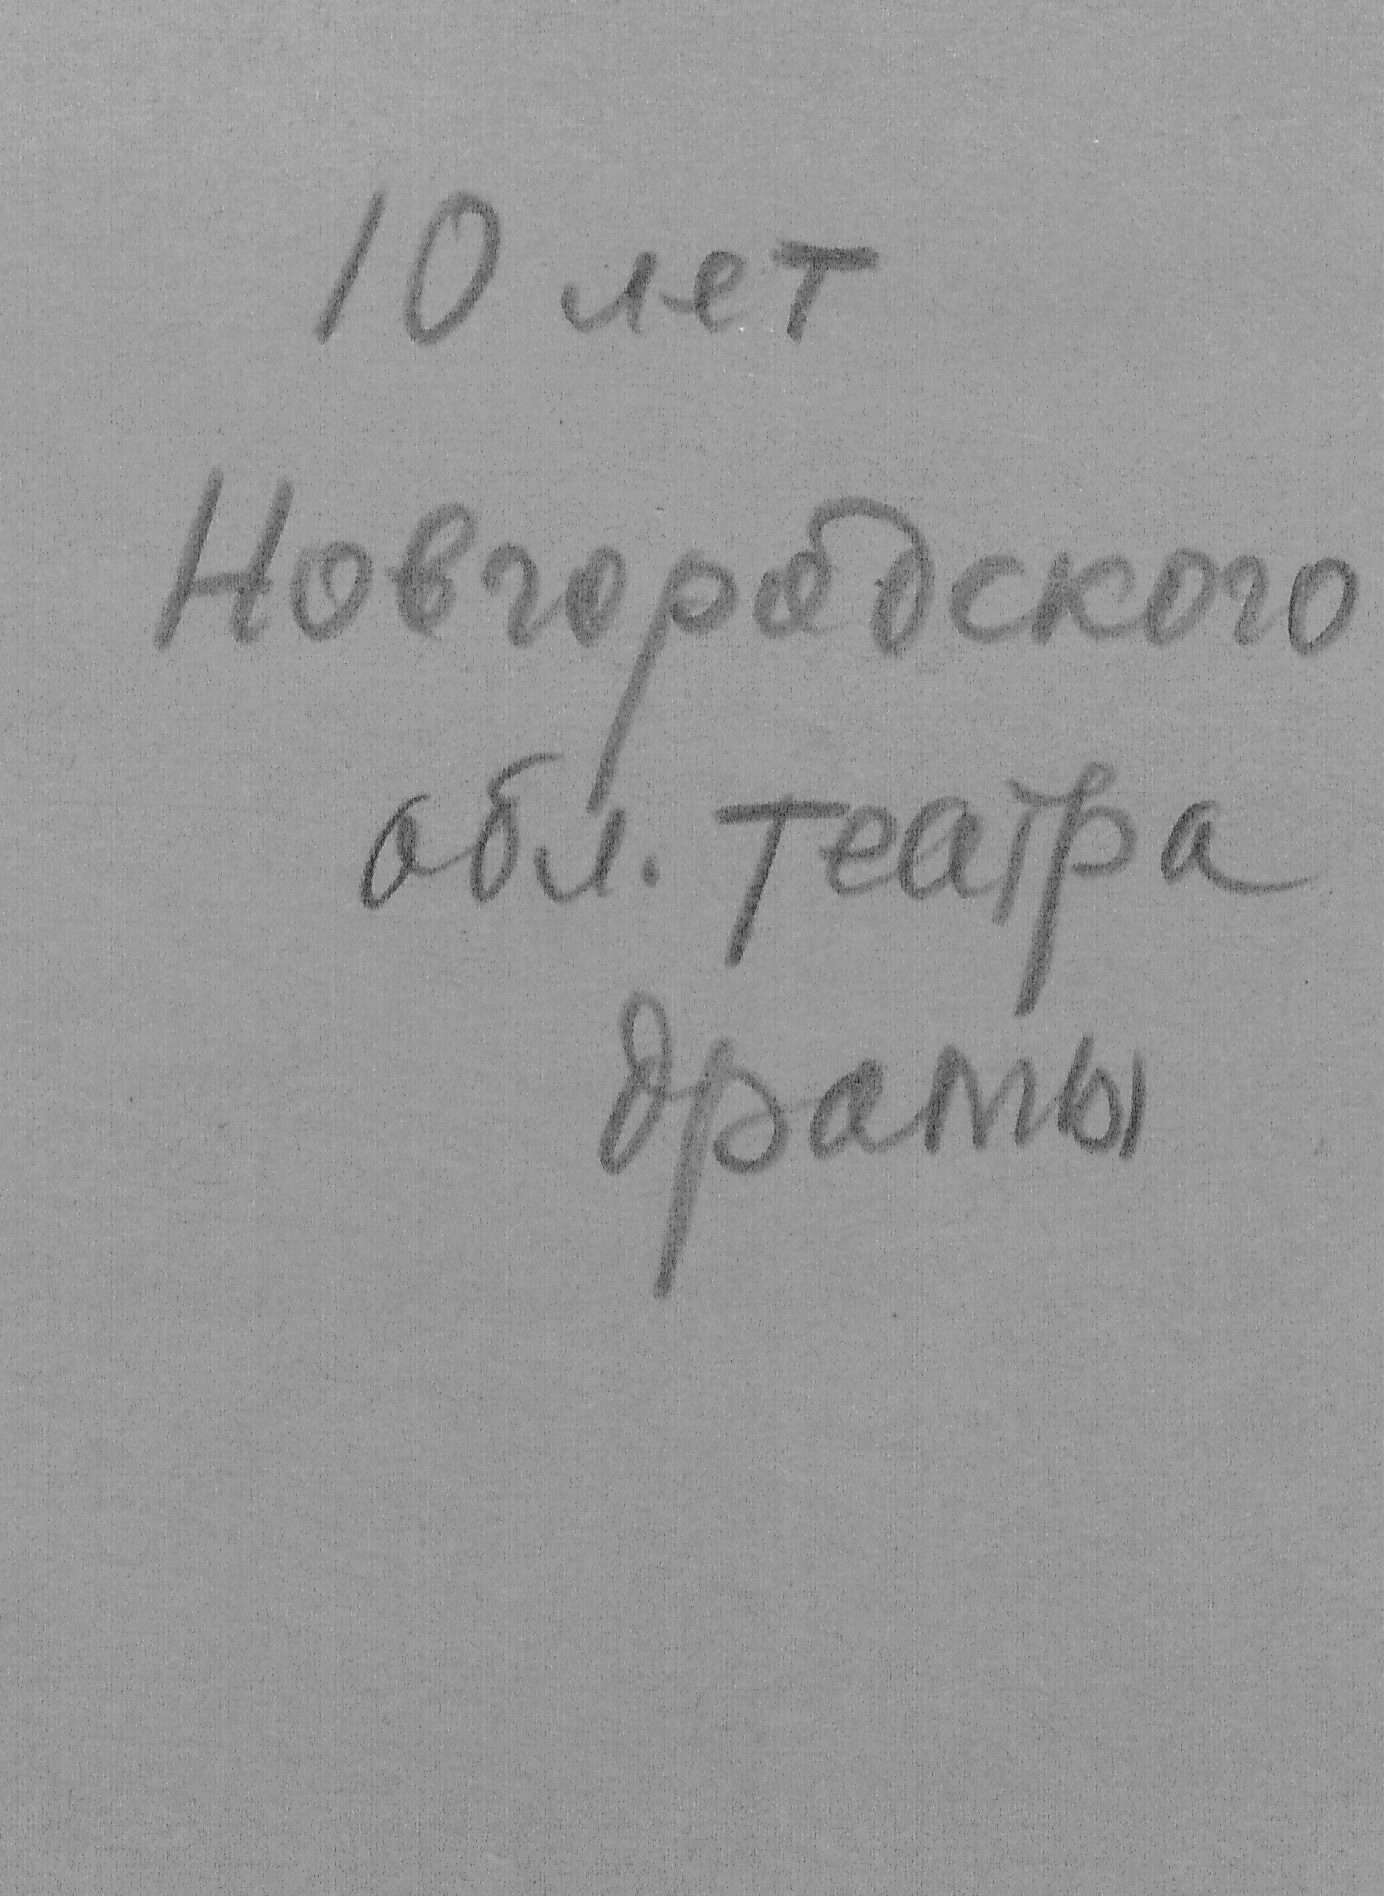 10 лет
Новгородского
обл. театра
драмы